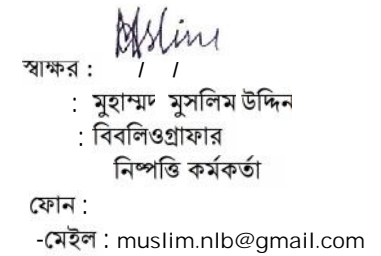 Muslim
স্বাক্ষর : / /
: মুহাম্মদ মুসলিম উদ্দিন
: বিবলিওগ্রাফার
নিষ্পত্তি কর্মকর্তা
ফোন :
-মেইল : muslim.nlb@gmail.com